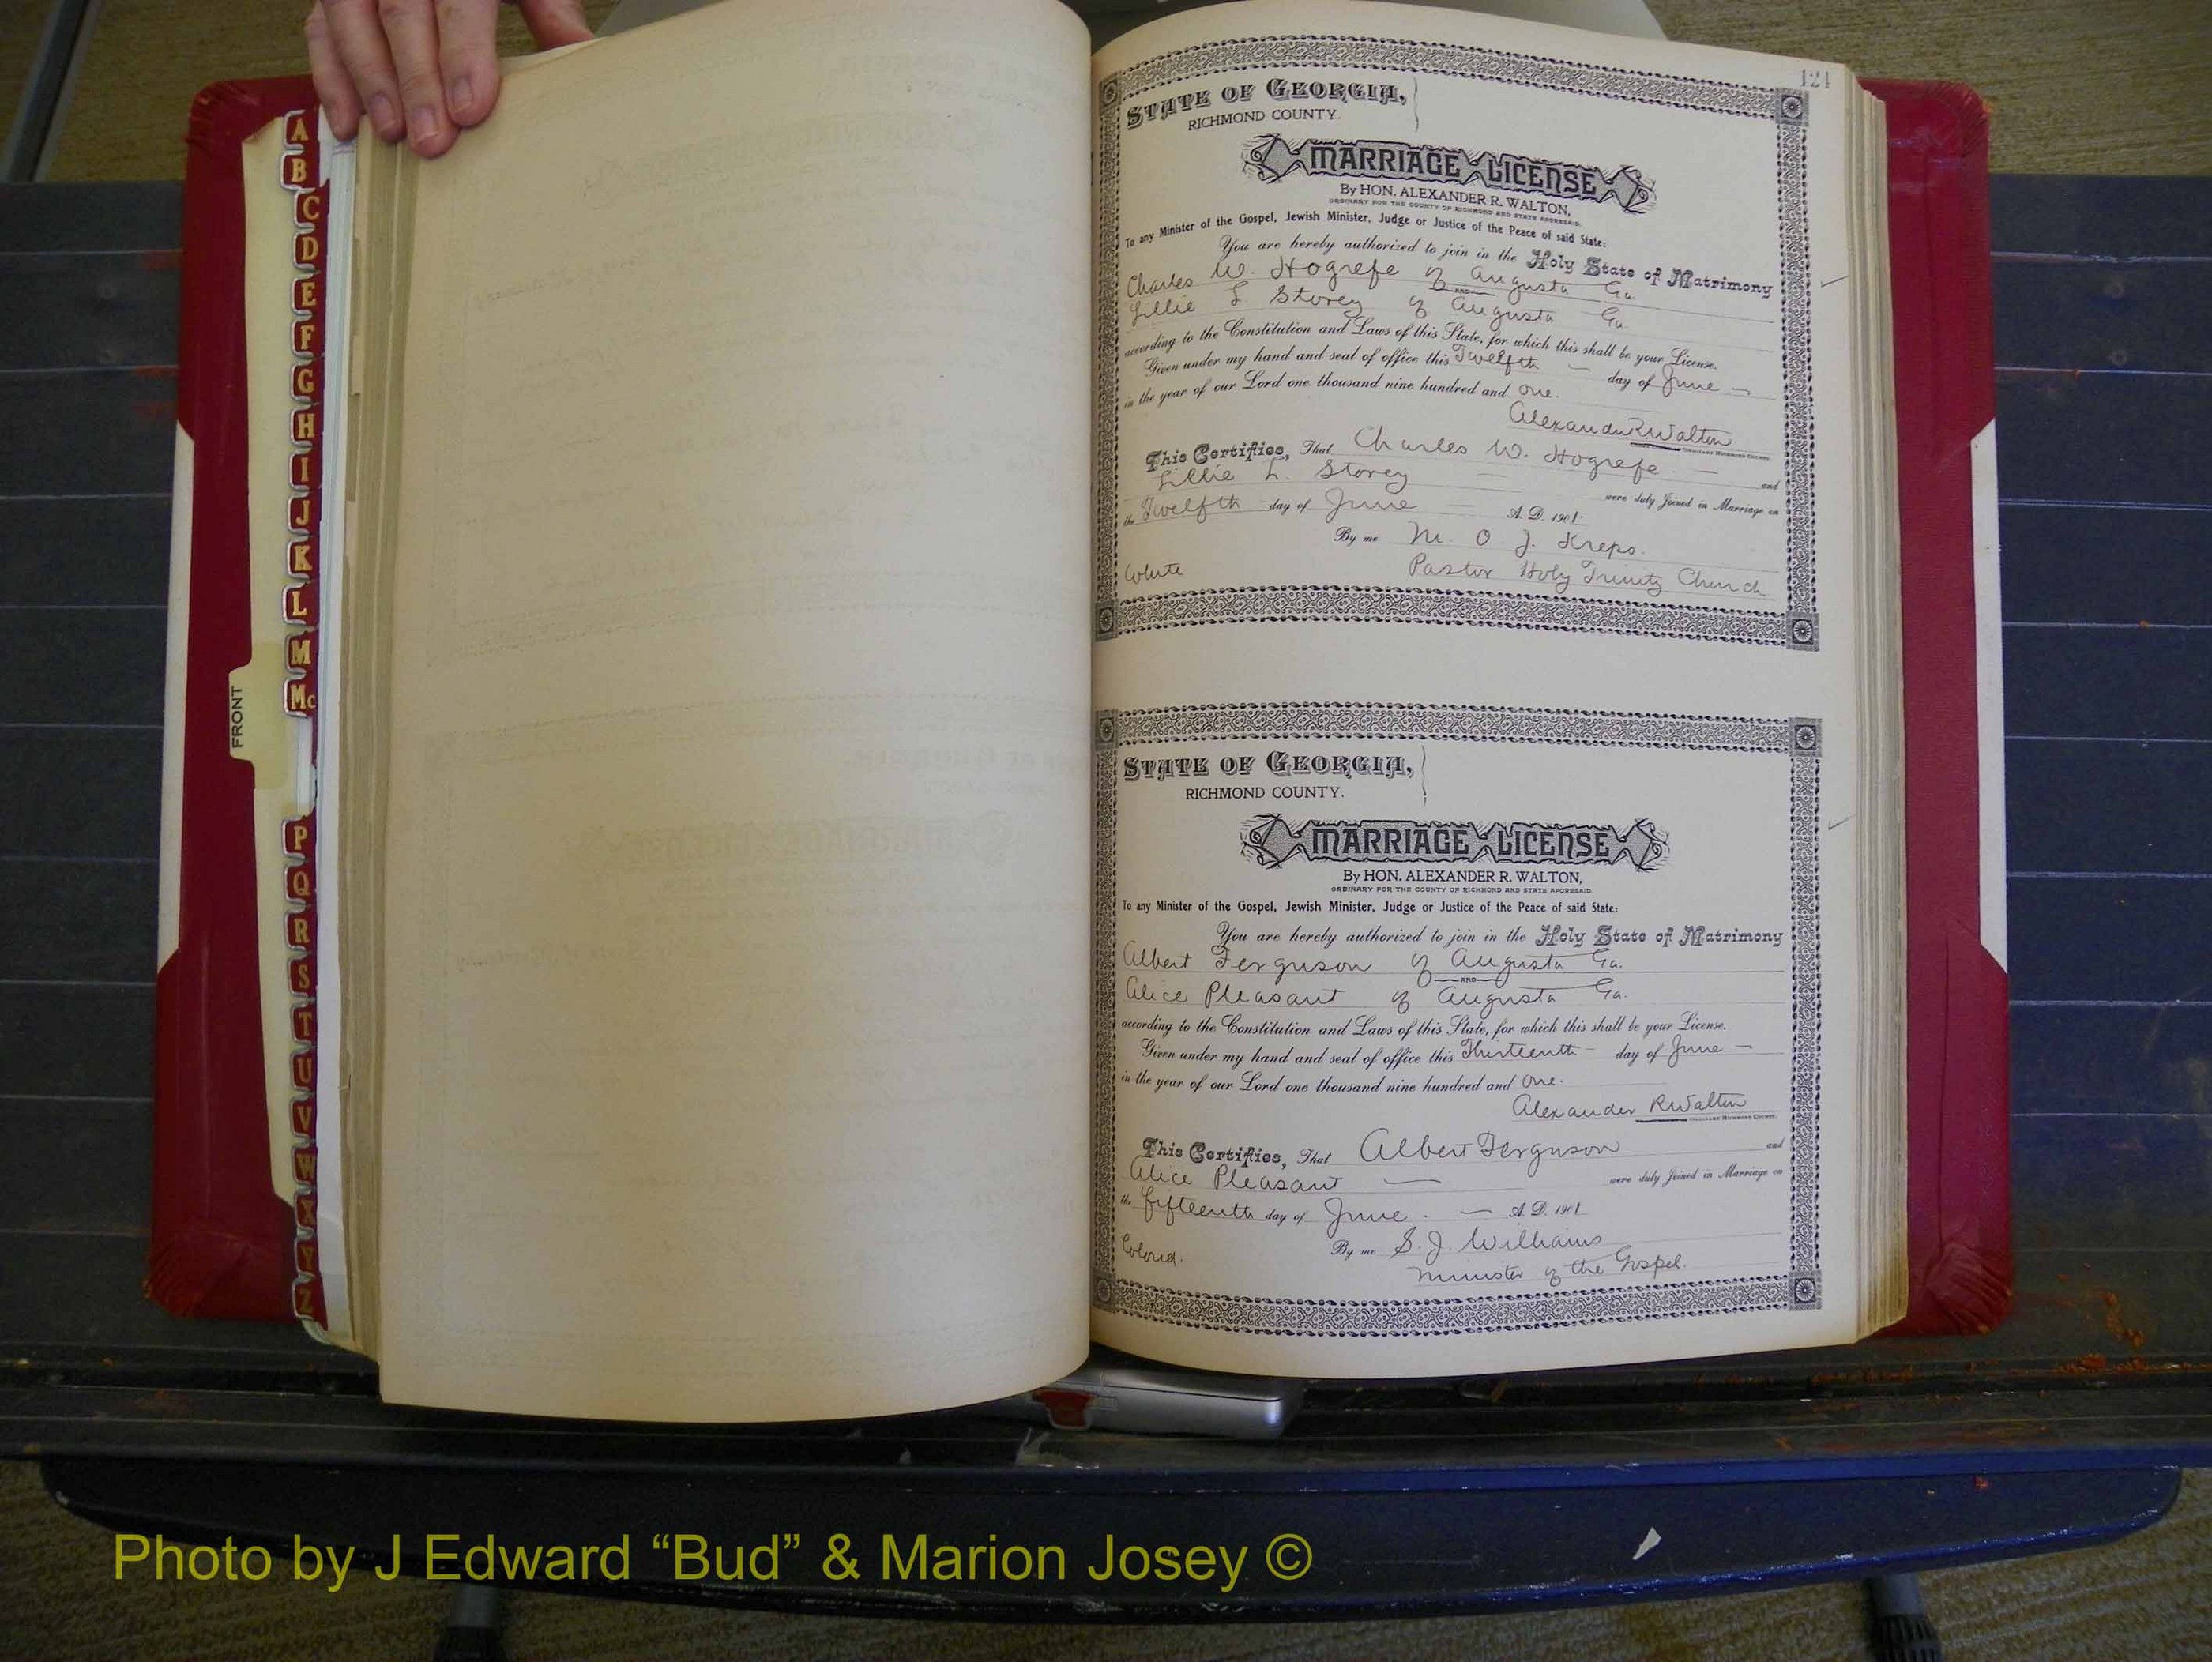 A
B
C
D
E
F
G
H
I
J
K
L
M
Mc
P
Q
R
S
T
U
V
W
X
Y
Z
FRONT
124
STATE OF GEORGIA,
RICHMOND COUNTY.
MARRIAGE LICENSE
By HON. ALEXANDER R. WALTON,
ORDINARY FOR THE COUNTY OF RICHMOND AND STATE AFORESAID.
To any Minister of the Gospel, Jewish Minister, Judge or Justice of the Peace of said State:
You are hereby authorized to join in the Holy State of Matrimony
Charles W. Hogrefe of Augusta Ga.
AND
Lillie L. Storey of Augusta Ga.
according to the Constitution and Laws of this State, for which this shall be your License.
Given under my hand and seal of office this Twelfth day of June
in the year of our Lord one thousand nine hundred and One.
Alexander R Walton
ORDINARY RICHMOND COUNTY.
This Certifies, That Charles W. Hogrefe and
Lillie L. Storey were duly Joined in Marriage on
the Twelfth day of June A. D. 1901.
By me M. O. J. Kreps.
White Pastor Holy Trinity Church
STATE OF GEORGIA,
RICHMOND COUNTY.
MARRIAGE LICENSE
By HON. ALEXANDER R. WALTON,
ORDINARY FOR THE COUNTY OF RICHMOND AND STATE AFORESAID.
To any Minister of the Gospel, Jewish Minister, Judge or Justice of the Peace of said State:
You are hereby authorized to join in the Holy State of Matrimony
Albert Ferguson of Augusta Ga.
AND
Alice Pleasant of Augusta Ga.
according to the Constitution and Laws of this State, for which this shall be your License.
Given under my hand and seal of office this Thirteenth day of June
in the year of our Lord one thousand nine hundred and One.
Alexander R Walton
ORDINARY RICHMOND COUNTY.
This Certifies, That Albert Ferguson and
Alice Pleasant were duly Joined in Marriage on
the fifteenth day of June. A. D. 1901
Colored. By me S. J. Williams
Minister of the Gospel.
Photo by J Edward “Bud” & Marion Josey ©